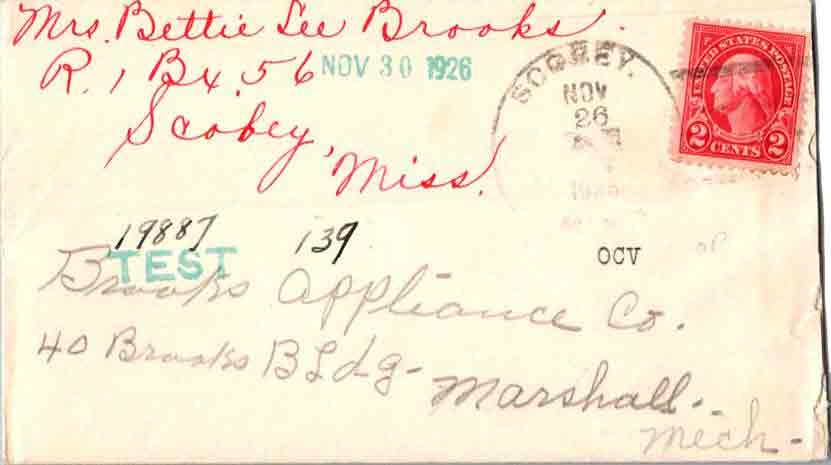 Mrs. Bettie Lee Brooks.
R. 1 Bx. 56
NOV 30 1926
Scobey,
Miss.
SCOBEY.
NOV
26
UNITED STATES POSTAGE
2 CENTS 2
19887 139
TEST
OCV
Brooks Appliance Co.
40 Brooks BLdg-
Marshall.
Mich-